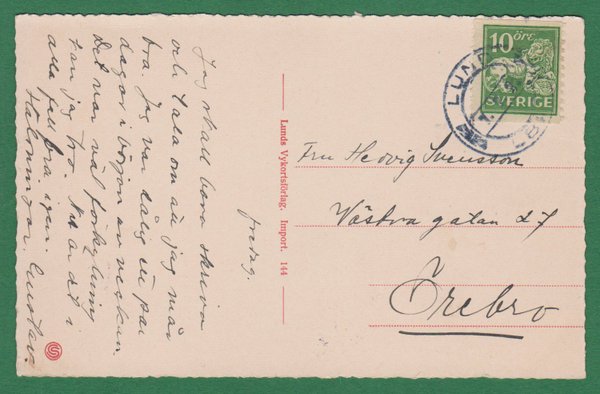 fredag.
Jag skall bara skriva
och tala om att jag mår
bra. Jag var dålig ett par
dagar i början av veckan.
Det var väl förkylning
kan jag tro. Nu är det i
alla fall bra igen.
Hälsningar. Gustav.
Lunds Vykortsförlag. Import. 144
10 ÖRE
SVERIGE
LUND
Fru Hedvig Svensson
Västra gatan 27
Örebro